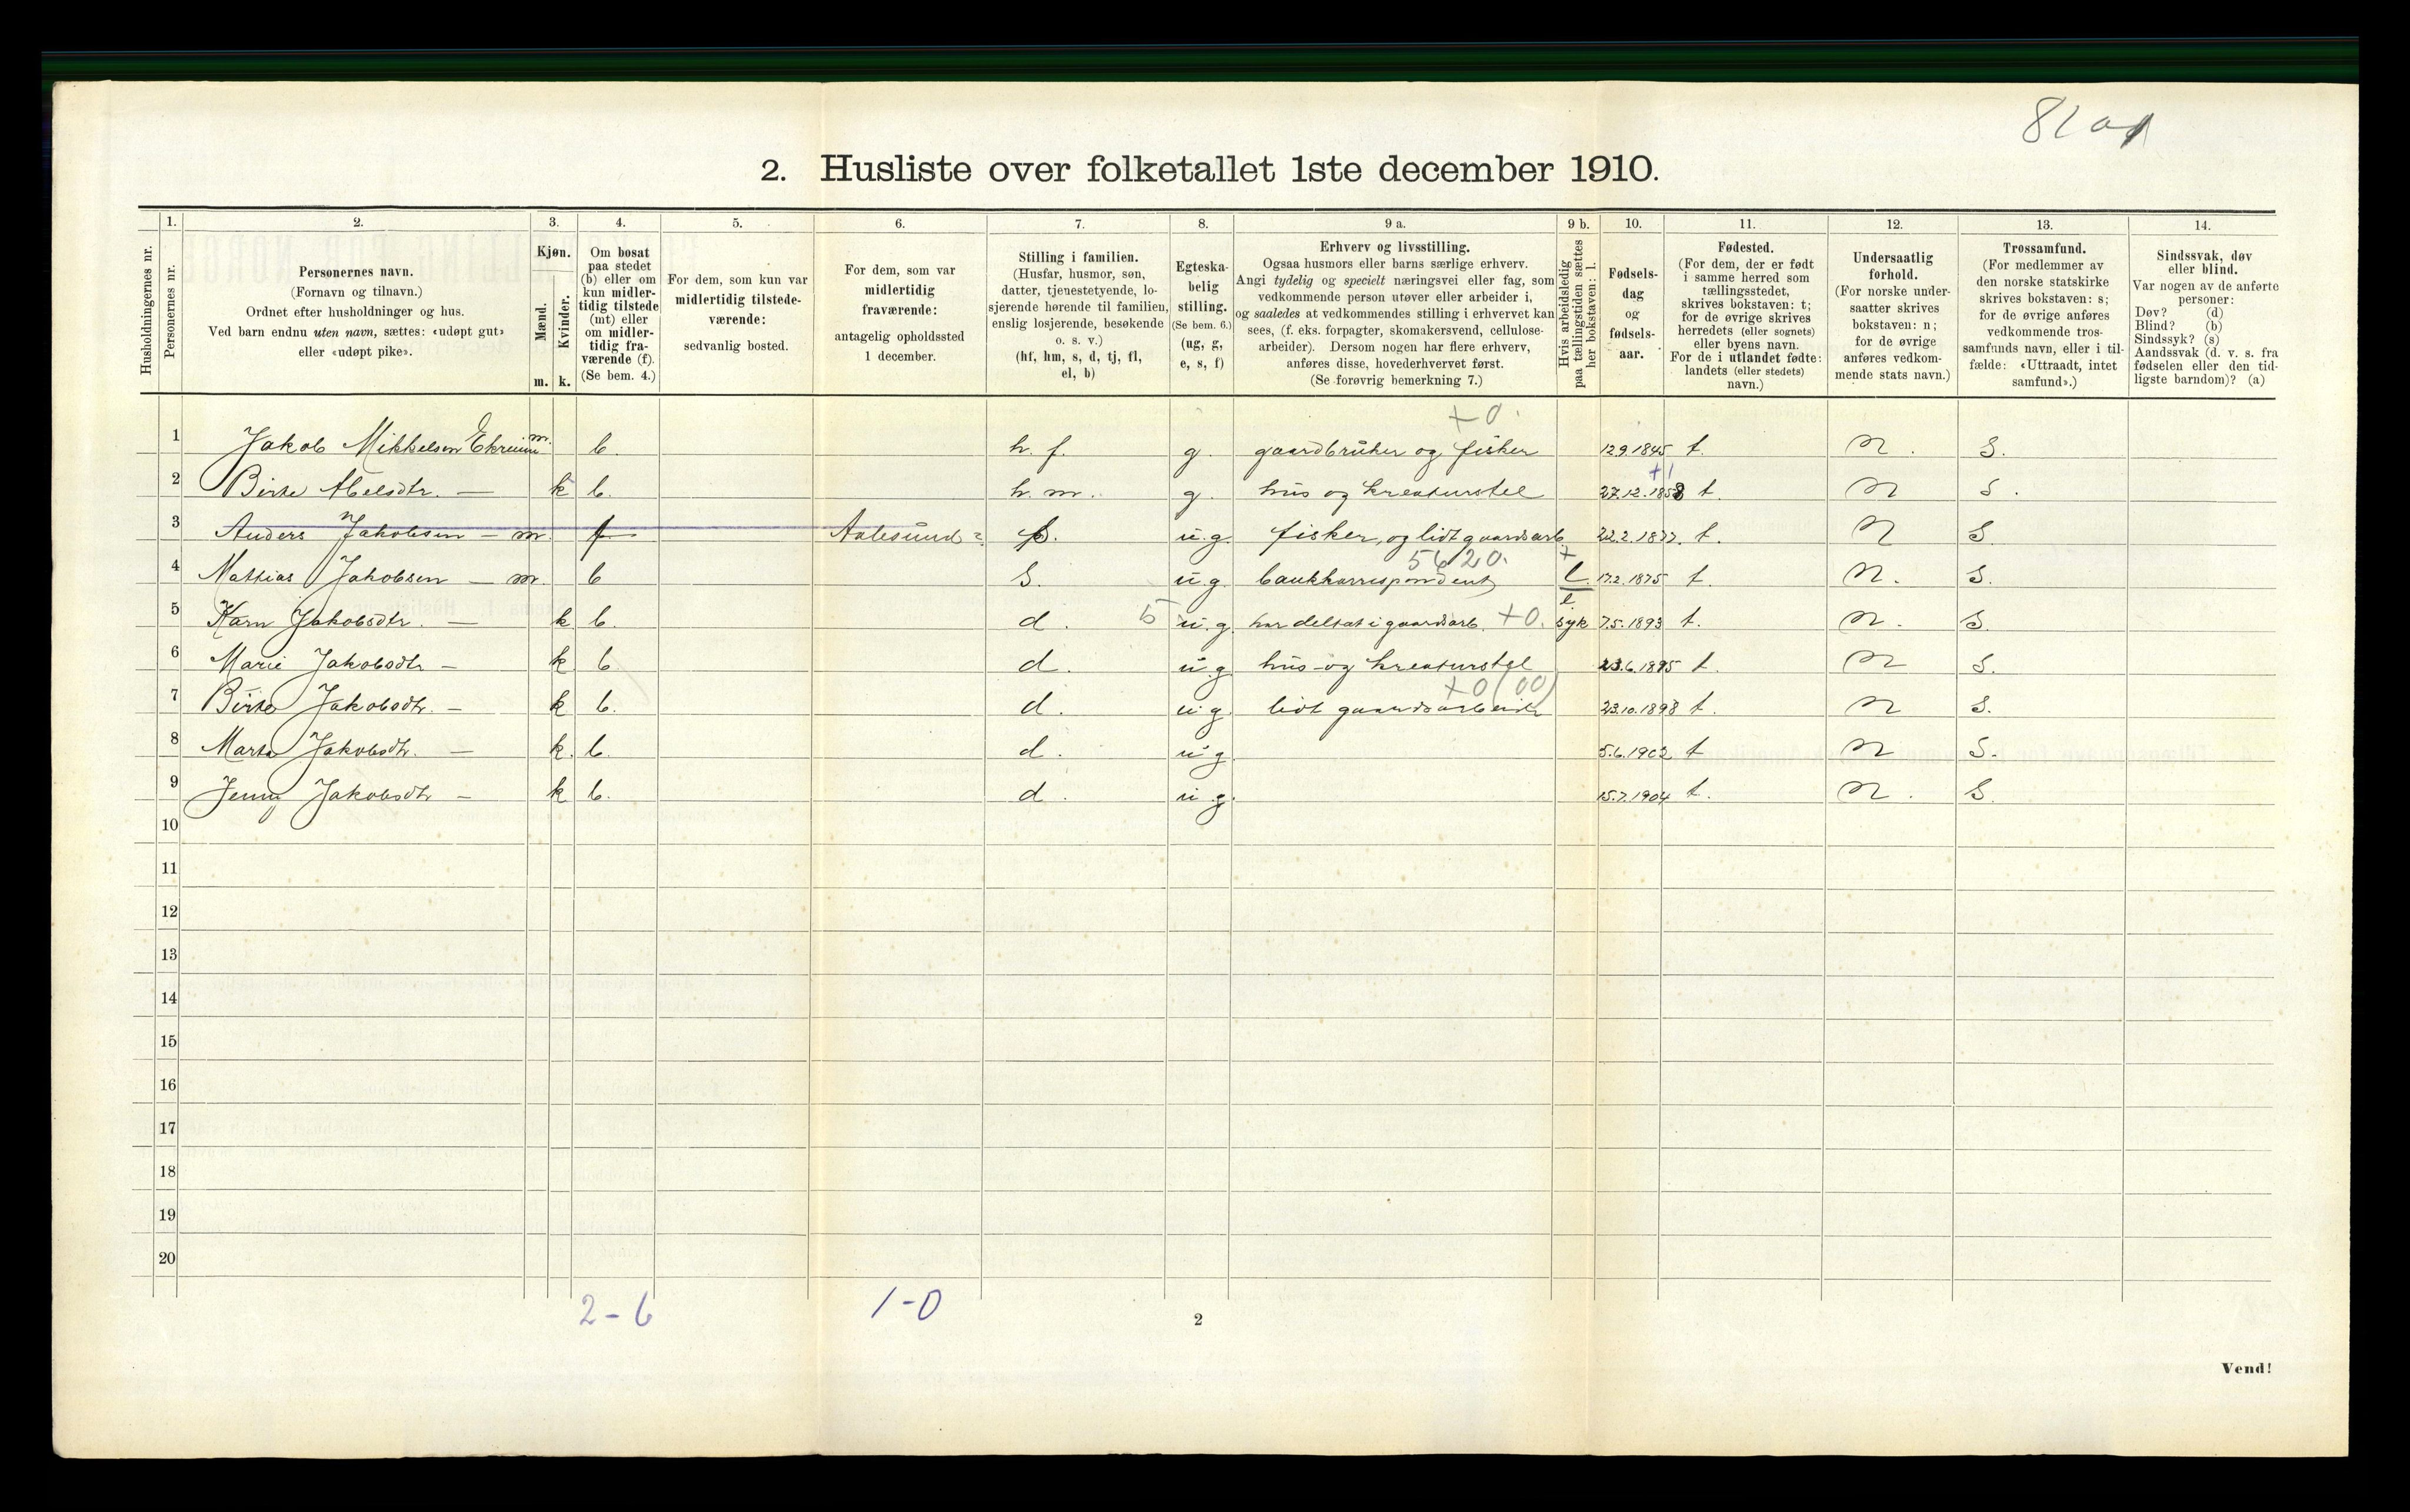 81 a
2. Husliste over folketallet 1ste december 1910.
Husholdningernes nr.
1. Personernes nr.
2. Personernes navn.
(Fornavn og tilnavn.)
Ordnet efter husholdninger og hus.
Ved barn endnu uten navn, sættes: «udøpt gut»
eller «udøpt pike».
3. Kjøn.
Mænd. m.
Kvinder. k.
4. Om bosat
paa stedet
(b) eller om
kun midler-
tidig tilstede
(mt) eller
om midler-
tidig fra-
værende (f).
(Se bem. 4.)
5. For dem, som kun var
midlertidig tilstede-
værende:
sedvanlig bosted.
6. For dem, som var
midlertidig
fraværende:
antagelig opholdssted
1 december.
7. Stilling i familien.
(Husfar, husmor, søn,
datter, tjenestetyende, lo-
sjerende hørende til familien,
enslig losjerende, besøkende
o. s. v.)
(hf, hm, s, d, tj, fl,
el, b)
8. Egteska-
belig
stilling.
(Se bem. 6.)
(ug, g,
e, s, f)
9 a. Erhverv og livsstilling.
Ogsaa husmors eller barns særlige erhverv.
Angi tydelig og specielt næringsvei eller fag, som
vedkommende person utøver eller arbeider i,
og saaledes at vedkommendes stilling i erhvervet kan
sees, (f. eks. forpagter, skomakersvend, cellulose-
arbeider). Dersom nogen har flere erhverv,
anføres disse, hovederhvervet først.
(Se forøvrig bemerkning 7.)
9 b. Hvis arbeidsledig
paa tællingstiden sættes
her bokstaven: l.
10. Fødsels-
dag
og
fødsels-
aar.
11. Fødested.
(For dem, der er født
i samme herred som
tællingsstedet,
skrives bokstaven: t;
for de øvrige skrives
herredets (eller sognets)
eller byens navn.
For de i utlandet fødte:
landets (eller stedets)
navn.)
12. Undersaatlig
forhold.
(For norske under-
saatter skrives
bokstaven: n;
for de øvrige
anføres vedkom-
mende stats navn.)
13. Trossamfund.
(For medlemmer av
den norske statskirke
skrives bokstaven: s;
for de øvrige anføres
vedkommende tros-
samfunds navn, eller i til-
fælde: «Uttraadt, intet
samfund».)
14. Sindssvak, døv
eller blind.
Var nogen av de anførte
personer:
Døv? (d)
Blind? (b)
Sindssyk? (s)
Aandssvak (d. v. s. fra
fødselen eller den tid-
ligste barndom)? (a)
+ 0.
1 Jakob Mikkelsen Ekreim m. b. h. f. g. gaardbruker og fisker 12.9.1845 t. n. S.
2 Birte Abelsdtr. — k b. h. m. g. hus og kreaturstel 27.12.1858 t. n S.
3 Anders Jakobsen — m. f Aalesund s. u.g. fisker, og lidt gaardsarb. 22.2.1877. t. n S
5620.
4 Mattias Jakobsen — m. b S. u.g. bankkorrespondent l. 17.2.1875 t. n. S.
5 Karn Jakobsdtr. — k b. d. 5 u.g. har deltat i gaardsarb. +0. syk 7.5.1893 t. n. S.
6 Marie Jakobsdtr — k b d. u.g. hus og kreaturstel 23.6.1895 t. n S.
+0 (00)
7 Birte Jakobsdtr. — k b. d. u.g. lidt gaardsarbeide 23.10.1898 t. n S.
8 Marta Jakobsdtr. — k. b. d. u g. 5.6.1902 t n S.
9 Jenny Jakobsdtr — k b. d. u.g. 15.7.1904 t. n. S.
10
11
12
13
14
15
16
17
18
19
20
2-6 1-0
2
Vend!